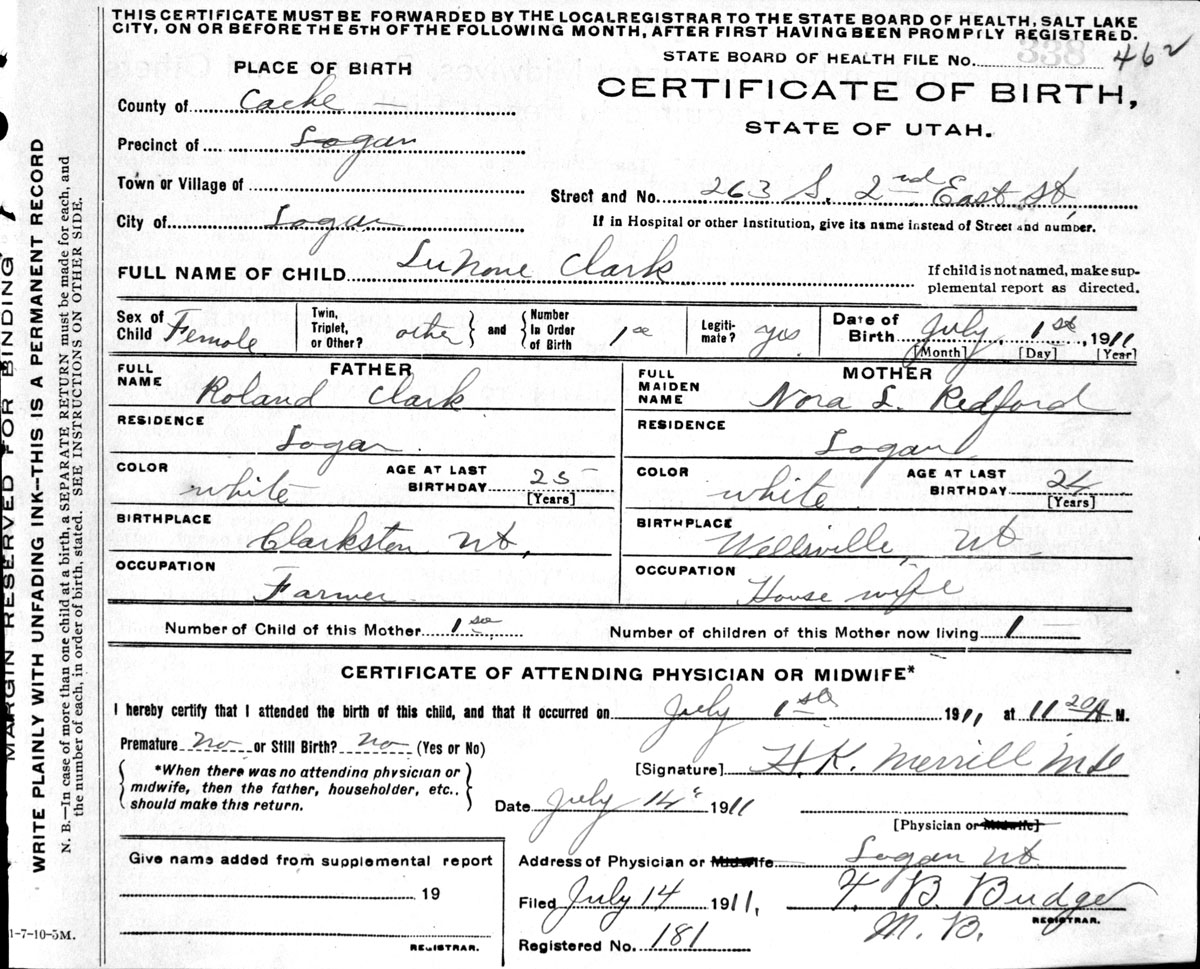 THIS CERTIFICATE MUST BE FORWARDED BY THE LOCAL REGISTRAR TO THE STATE BOARD OF HEALTH, SALT LAKE
CITY, ON OR BEFORE THE 5TH OF THE FOLLOWING MONTH, AFTER FIRST HAVING BEEN PROMPTLY REGISTERED.
STATE BOARD OF HEALTH FILE No. 462
PLACE OF BIRTH
CERTIFICATE OF BIRTH,
STATE OF UTAH.
County of Cache
Precinct of Logan
Town or Village of
Street and No. 263 S. 2nd East St,
City of Logan
If in Hospital or other Institution, give its name instead of Street and number.
FULL NAME OF CHILD LuNone Clark
If child is not named, make sup-
plemental report as directed.
Sex of Child Female
Twin, Triplet, or Other? other
and Number In Order of Birth 1st
Legiti-mate? yes
Date of Birth July 1st, 1911
[Month] [Day] [Year]
FATHER
FULL NAME Roland Clark
RESIDENCE Logan
COLOR white AGE AT LAST BIRTHDAY 25 [Years]
BIRTHPLACE Clarkston Ut,
OCCUPATION Farmer
MOTHER
FULL MAIDEN NAME Nora L. Redford
RESIDENCE Logan
COLOR white AGE AT LAST BIRTHDAY 24 [Years]
BIRTHPLACE Wellsville, Ut
OCCUPATION House wife
Number of Child of this Mother 1st
Number of children of this Mother now living 1
CERTIFICATE OF ATTENDING PHYSICIAN OR MIDWIFE*
I hereby certify that I attended the birth of this child, and that it occurred on July 1st 1911 at 11 20 A M.
Premature no or Still Birth? no (Yes or No)
*When there was no attending physician or
midwife, then the father, householder, etc.,
should make this return.
[Signature] H. K. Merrill MD
Date July 14 1911
[Physician or Midwife]
Address of Physician or Midwife Logan Ut
Filed July 14 1911,
Registered No. 181
B Budge
REGISTRAR.
Give name added from supplemental report
19
REGISTRAR.
MARGIN RESERVED FOR BINDING
WRITE PLAINLY WITH UNFADING INK—THIS IS A PERMANENT RECORD
N. B.—In case of more than one child at a birth, a SEPARATE RETURN must be made for each, and
the number of each, in order of birth, stated. SEE INSTRUCTIONS ON OTHER SIDE.
1-7-10-5M.